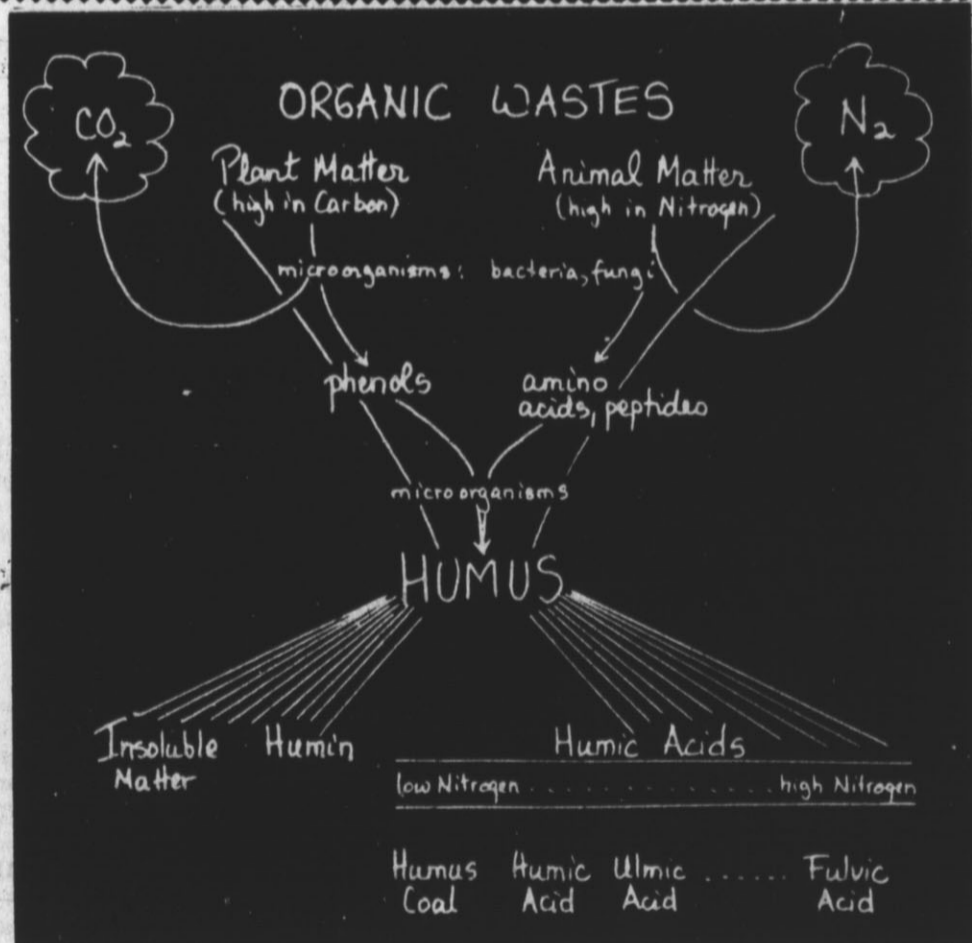 ORGANIC WASTES
CO₂
N₂
Plant Matter
(high in Carbon)
Animal Matter
(high in Nitrogen)
microorganisms: bacteria, fungi
phenols
amino
acids, peptides
microorganisms
HUMUS
Insoluble
Matter
Humin
Humic Acids
low Nitrogen . . . . . . . . . . . . . high Nitrogen
Humus
Coal
Humic
Acid
Ulmic
Acid
......
Fulvic
Acid